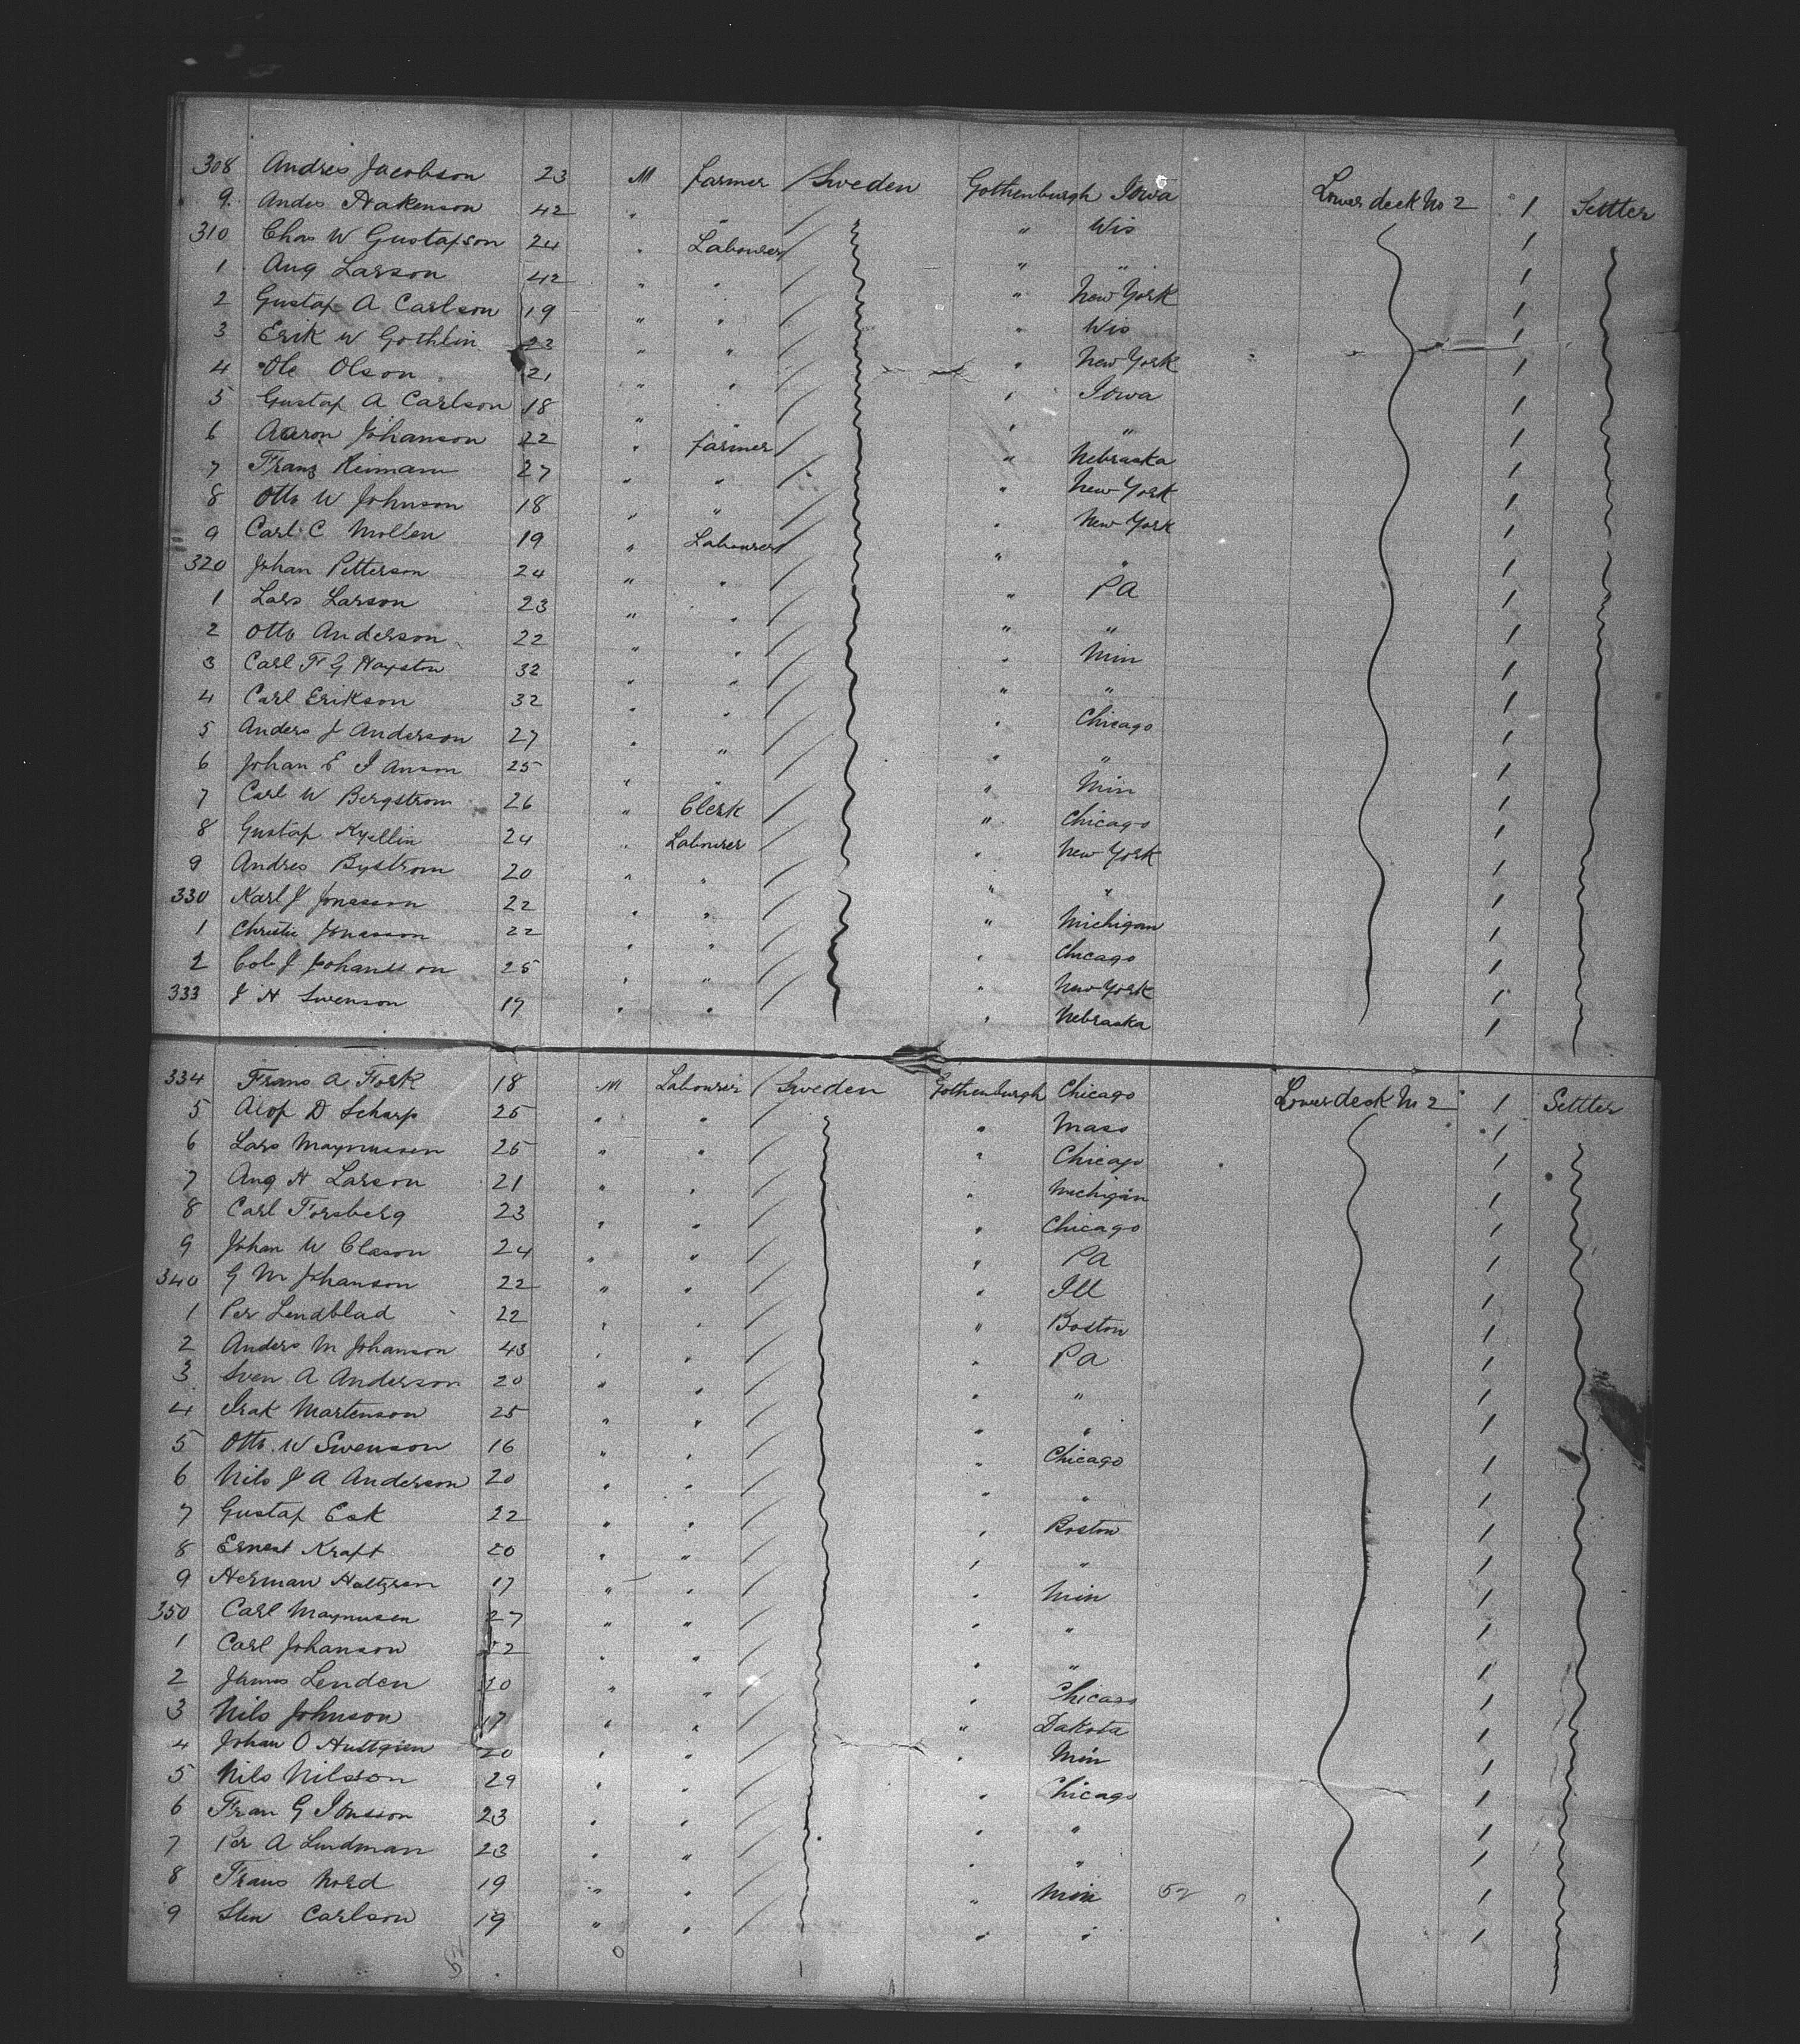 308 Andres Jacobson 23 M Farmer / Sweden Gothenburgh Iowa Lower deck No 2 1 Settler
9 Andes Hakenson 42 " " / " Wis 1
310 Chas W Gustafson 24 " Labourer / " " 1
1 Aug Larson 42 " " / " New York 1
2 Gustaf A Carlson 19 " " / " Wis 1
3 Erik W Gothlin 23 " " / " New York 1
4 Ole Olson 21 " " / " Iowa 1
5 Gustaf A Carlson 18 " " / " " 1
6 Aaron Johanson 22 " Farmer / " Nebraska 1
7 Franz Reimann 27 " " / " New York 1
8 Otto W Johnson 18 " " / " New York 1
9 Carl C Mollen 19 " Labourer / " " 1
320 Johan Petterson 24 " " / " PA 1
1 Lars Larson 23 " " / " " 1
2 Otto Anderson 22 " " / " Min 1
3 Carl F G 32 " " / " " 1
4 Carl Erikson 32 " " / " Chicago 1
5 Anders J Anderson 27 " " / " " 1
6 Johan E 25 " " / " Min 1
7 Carl W Bergstrom 26 " Clerk / " Chicago 1
8 Gustaf Kyellin 24 " Labourer / " New York 1
9 Andres Bystrom 20 " " / " " 1
330 Karl J Jonasson 22 " " / " Michigan 1
1 Jonasson 22 " " / " Chicago 1
2 J Johansson 25 " " / " New York 1
333 J H Swenson 19 " " / " Nebraska 1
334 Frans A Fork 18 M Labourer / Sweden Gothenburgh Chicago Lower deck No 2 1 Settler
5 Alof D Scharp 25 " " / " Mass 1
6 Lars Magnussen 25 " " / " Chicago 1
7 Aug H Larson 21 " " / " Michigan 1
8 Carl Forsberg 23 " " / " Chicago 1
9 Johan W Clason 24 " " / " PA
340 G M Johanson 22 " " / " Ill 1
1 Per Lendblad 22 " " / " Boston 1
2 Anders M Johanson 43 " " / " PA 1
3 Sven A Anderson 20 " " / " " 1
4 Isak Martenson 25 " " / " " 1
5 Otto W Swenson 16 " " / " Chicago 1
6 Nils J A Anderson 20 " " / " " 1
7 Gustaf Eek 22 " " / " Boston 1
8 Ernest Kraft 20 " " / " " 1
9 Herman 17 " " / " Min 1
350 Carl Magnusen 27 " " / " " 1
1 Carl Johanson " " / " " 1
2 James Lenden " " / " Chicago 1
3 Nils Johnson 17 " " / " Dakota 1
4 Johan O 20 " " / " Min 1
5 Nils Nilsson 29 " " / " Chicago 1
6 Fran G Jonsson 23 " " / " " 1
7 Per A Lindman 23 " " / " " 1
8 Frans Nord 19 " " / " Min 52 1
9 Sten Carlson 19 " " / " " 1